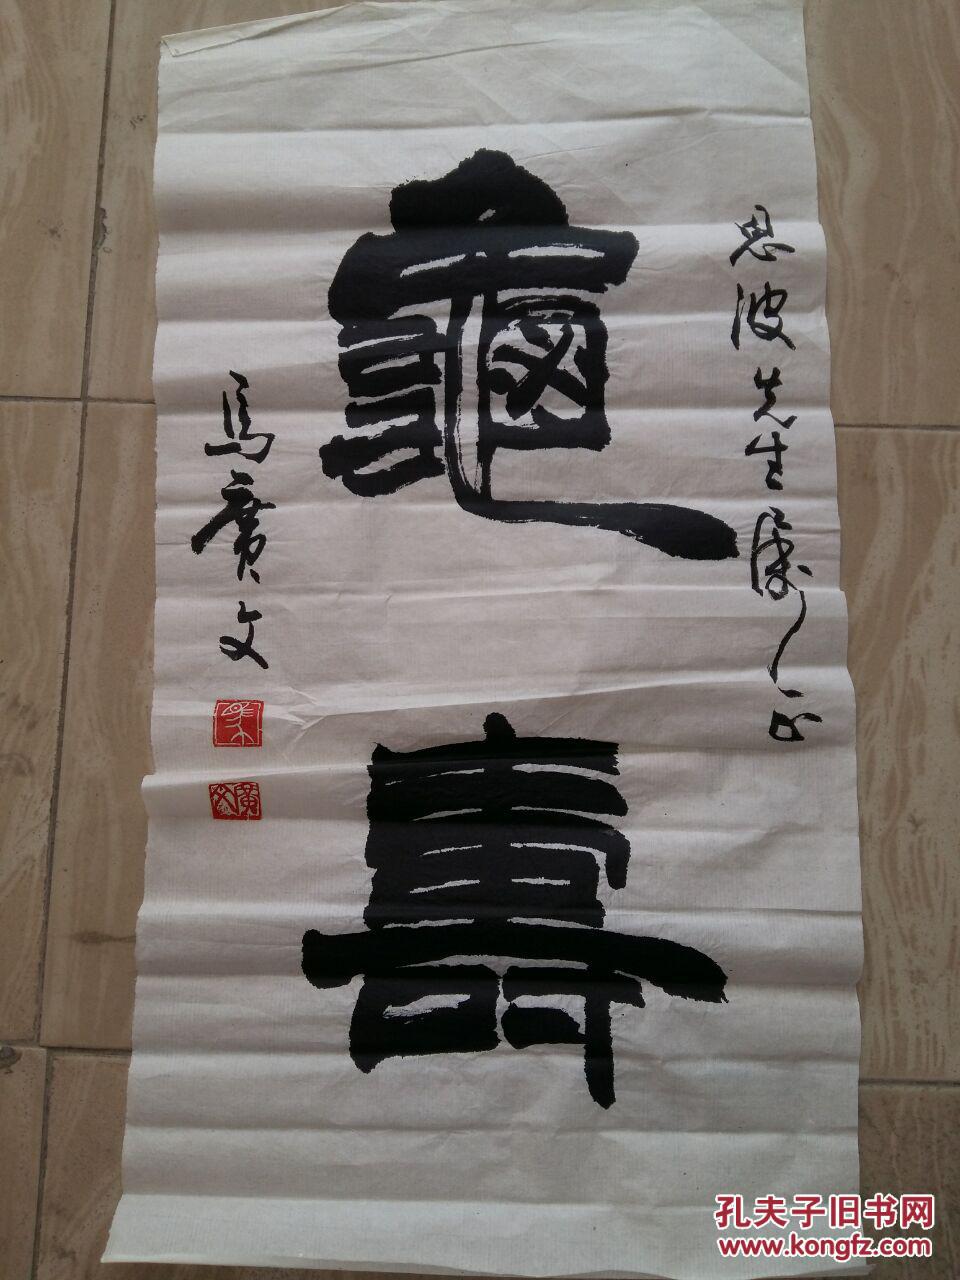 思波先生属正
龜壽
馬广文
廣文
孔夫子旧书网
www.kongfz.com